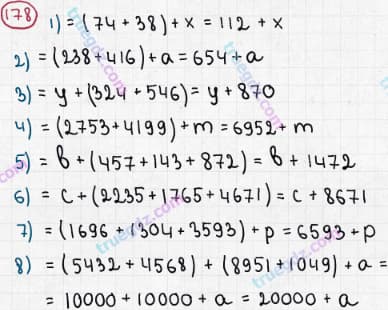 178 1) = (74 + 38) + x = 112 + x
2) = (238 + 416) + a = 654 + a
3) = y + (324 + 546) = y + 870
4) = (2753 + 4199) + m = 6952 + m
5) = b + (457 + 143 + 872) = b + 1472
6) = c + (2235 + 1765 + 4671) = c + 8671
7) = (1696 + 1304 + 3593) + p = 6593 + p
8) = (5432 + 4568) + (8951 + 1049) + a =
= 10000 + 10000 + a = 20000 + a
truegdz.com